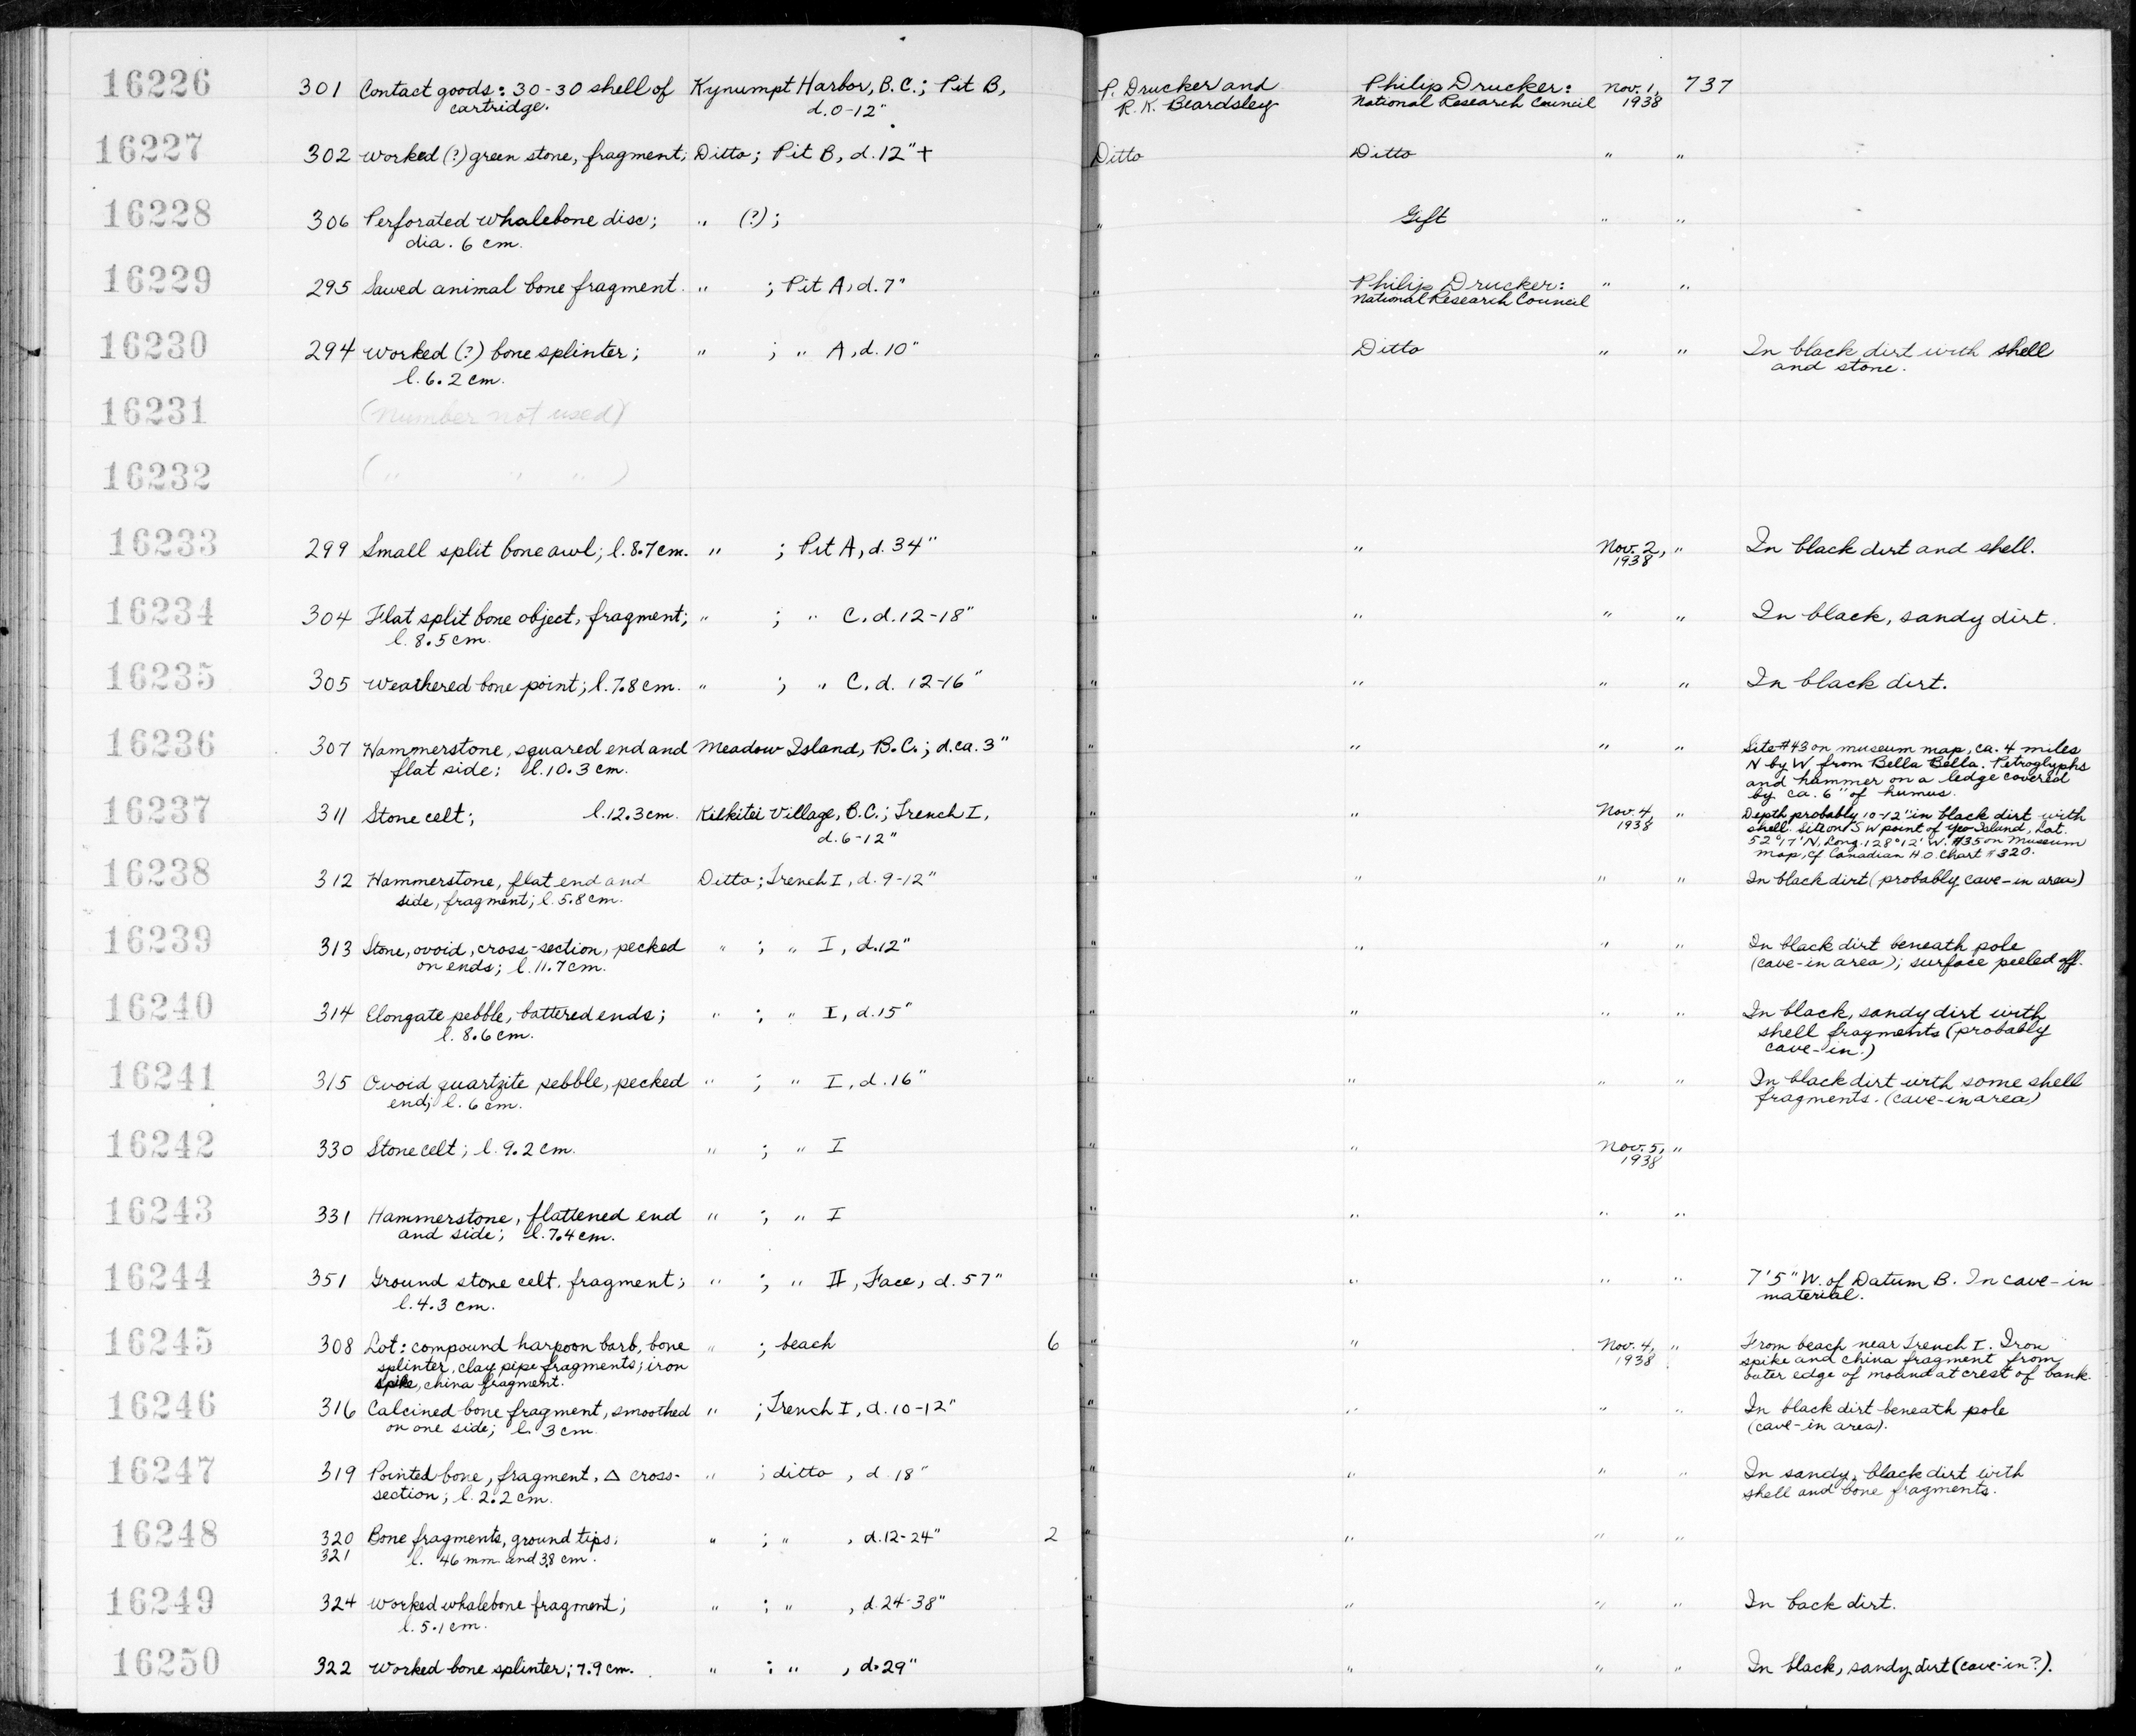 16226 301 Contact goods: 30-30 shell of Kynumpt Harbor, B.C.; Pit B, P. Drucker and Philip Drucker: Nov. 1, 737
cartridge. d. 0-12" R. K. Beardsley National Research Council 1938
16227 302 Worked (?) green stone, fragment; Ditto; Pit B, d. 12"+ Ditto Ditto " "
16228 306 Perforated whalebone disc; " (?); " Gift " "
dia. 6 cm.
16229 295 Sawed animal bone fragment. " ; Pit A, d. 7" " Philip Drucker: " "
National Research Council
16230 294 Worked (?) bone splinter; " ; " A, d. 10" " Ditto " " In black dirt with shell
l. 6.2 cm. and stone.
16231 (Number not used)
16232 ( " " " )
16233 299 Small split bone awl; l. 8.7 cm. " ; Pit A, d. 34" " " Nov. 2, " In black dirt and shell.
1938
16234 304 Flat split bone object, fragment; " ; " C, d. 12-18" " " " " In black, sandy dirt.
l. 8.5 cm.
16235 305 Weathered bone point; l. 7.8 cm. " ; " C, d. 12-16" " " " " In black dirt.
16236 307 Hammerstone, squared end and Meadow Island, B.C.; d. ca. 3" " " " " Site #43 on museum map, ca. 4 miles
flat side; l. 10.3 cm. N by W from Bella Bella. Petroglyphs
and hammer on a ledge covered
by ca. 6" of humus.
16237 311 Stone celt; l. 12.3 cm. Kilkitei Village, B.C.; Trench I, " " Nov. 4, " Depth probably 10-12" in black dirt with
d. 6-12" 1938 shell. Site on SW point of Yeo Island, Lat.
52°17'N, Long. 128°12' W. #35 on Museum
map, cf Canadian H.O. Chart #320.
16238 312 Hammerstone, flat end and Ditto; Trench I, d. 9-12" " " " " In black dirt (probably cave-in area)
side, fragment; l. 5.8 cm.
16239 313 Stone, ovoid, cross-section, pecked " ; " I, d. 12" " " " " In black dirt beneath pole
on ends; l. 11.7 cm. (cave-in area); surface peeled off.
16240 314 Elongate pebble, battered ends; " ; " I, d. 15" " " " " In black, sandy dirt with
l. 8.6 cm. shell fragments (probably
cave-in.)
16241 315 Ovoid quartzite pebble, pecked " ; " I, d. 16" " " " " In black dirt with some shell
end; l. 6 cm. fragments. (cave-in area)
16242 330 Stone celt; l. 9.2 cm. " ; " I " " Nov. 5, "
1938
16243 331 Hammerstone, flattened end " ; " I " " " "
and side; l. 7.4 cm.
16244 351 Ground stone celt, fragment; " ; " II, Face, d. 57" " " " " 7'5" W. of Datum B. In cave-in
l. 4.3 cm. material.
16245 308 Lot: compound harpoon barb, bone " ; beach 6 " " Nov. 4, " From beach near Trench I. Iron
splinter, clay pipe fragments; iron 1938 spike and china fragment from
spike, china fragment. outer edge of mound at crest of bank.
16246 316 Calcined bone fragment, smoothed " ; Trench I, d. 10-12" " " " " In black dirt beneath pole
on one side; l. 3 cm. (cave-in area).
16247 319 Pointed bone, fragment, △ cross- " ; ditto, d. 18" " " " " In sandy, black dirt with
section; l. 2.2 cm. shell and bone fragments.
16248 320 Bone fragments, ground tips; " ; " , d. 12-24" 2 " " " "
321 l. 46 mm. and 3.8 cm.
16249 324 Worked whalebone fragment; " ; " , d. 24-38" " " " " In back dirt.
l. 5.1 cm.
16250 322 Worked bone splinter; 7.9 cm. " ; " , d. 29" " " " " In black, sandy dirt (cave-in?).